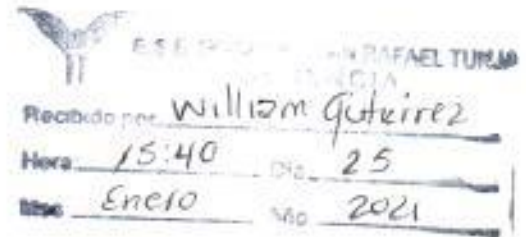 E.S.E. RAFAEL TUNJA
Recibido por William Gutierrez
Hora 15:40 Día 25
Mes Enero Año 2021